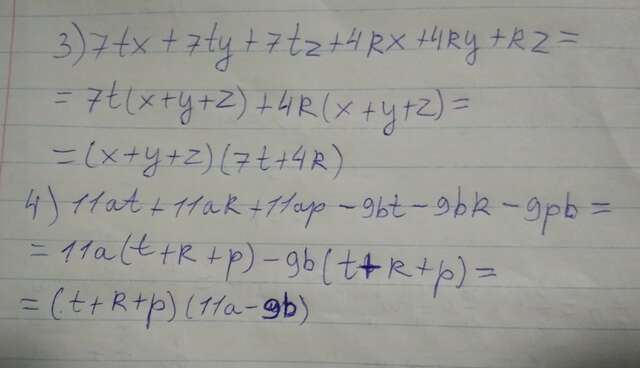 3) 7tx + 7ty + 7tz + 4kx + 4ky + kz =
= 7t(x+y+z) + 4k(x+y+z) =
= (x+y+z)(7t+4k)
4) 11at + 11ak + 11ap - 9bt - 9bk - 9pb =
= 11a(t+k+p) - 9b(t+k+p) =
= (t+k+p)(11a-9b)